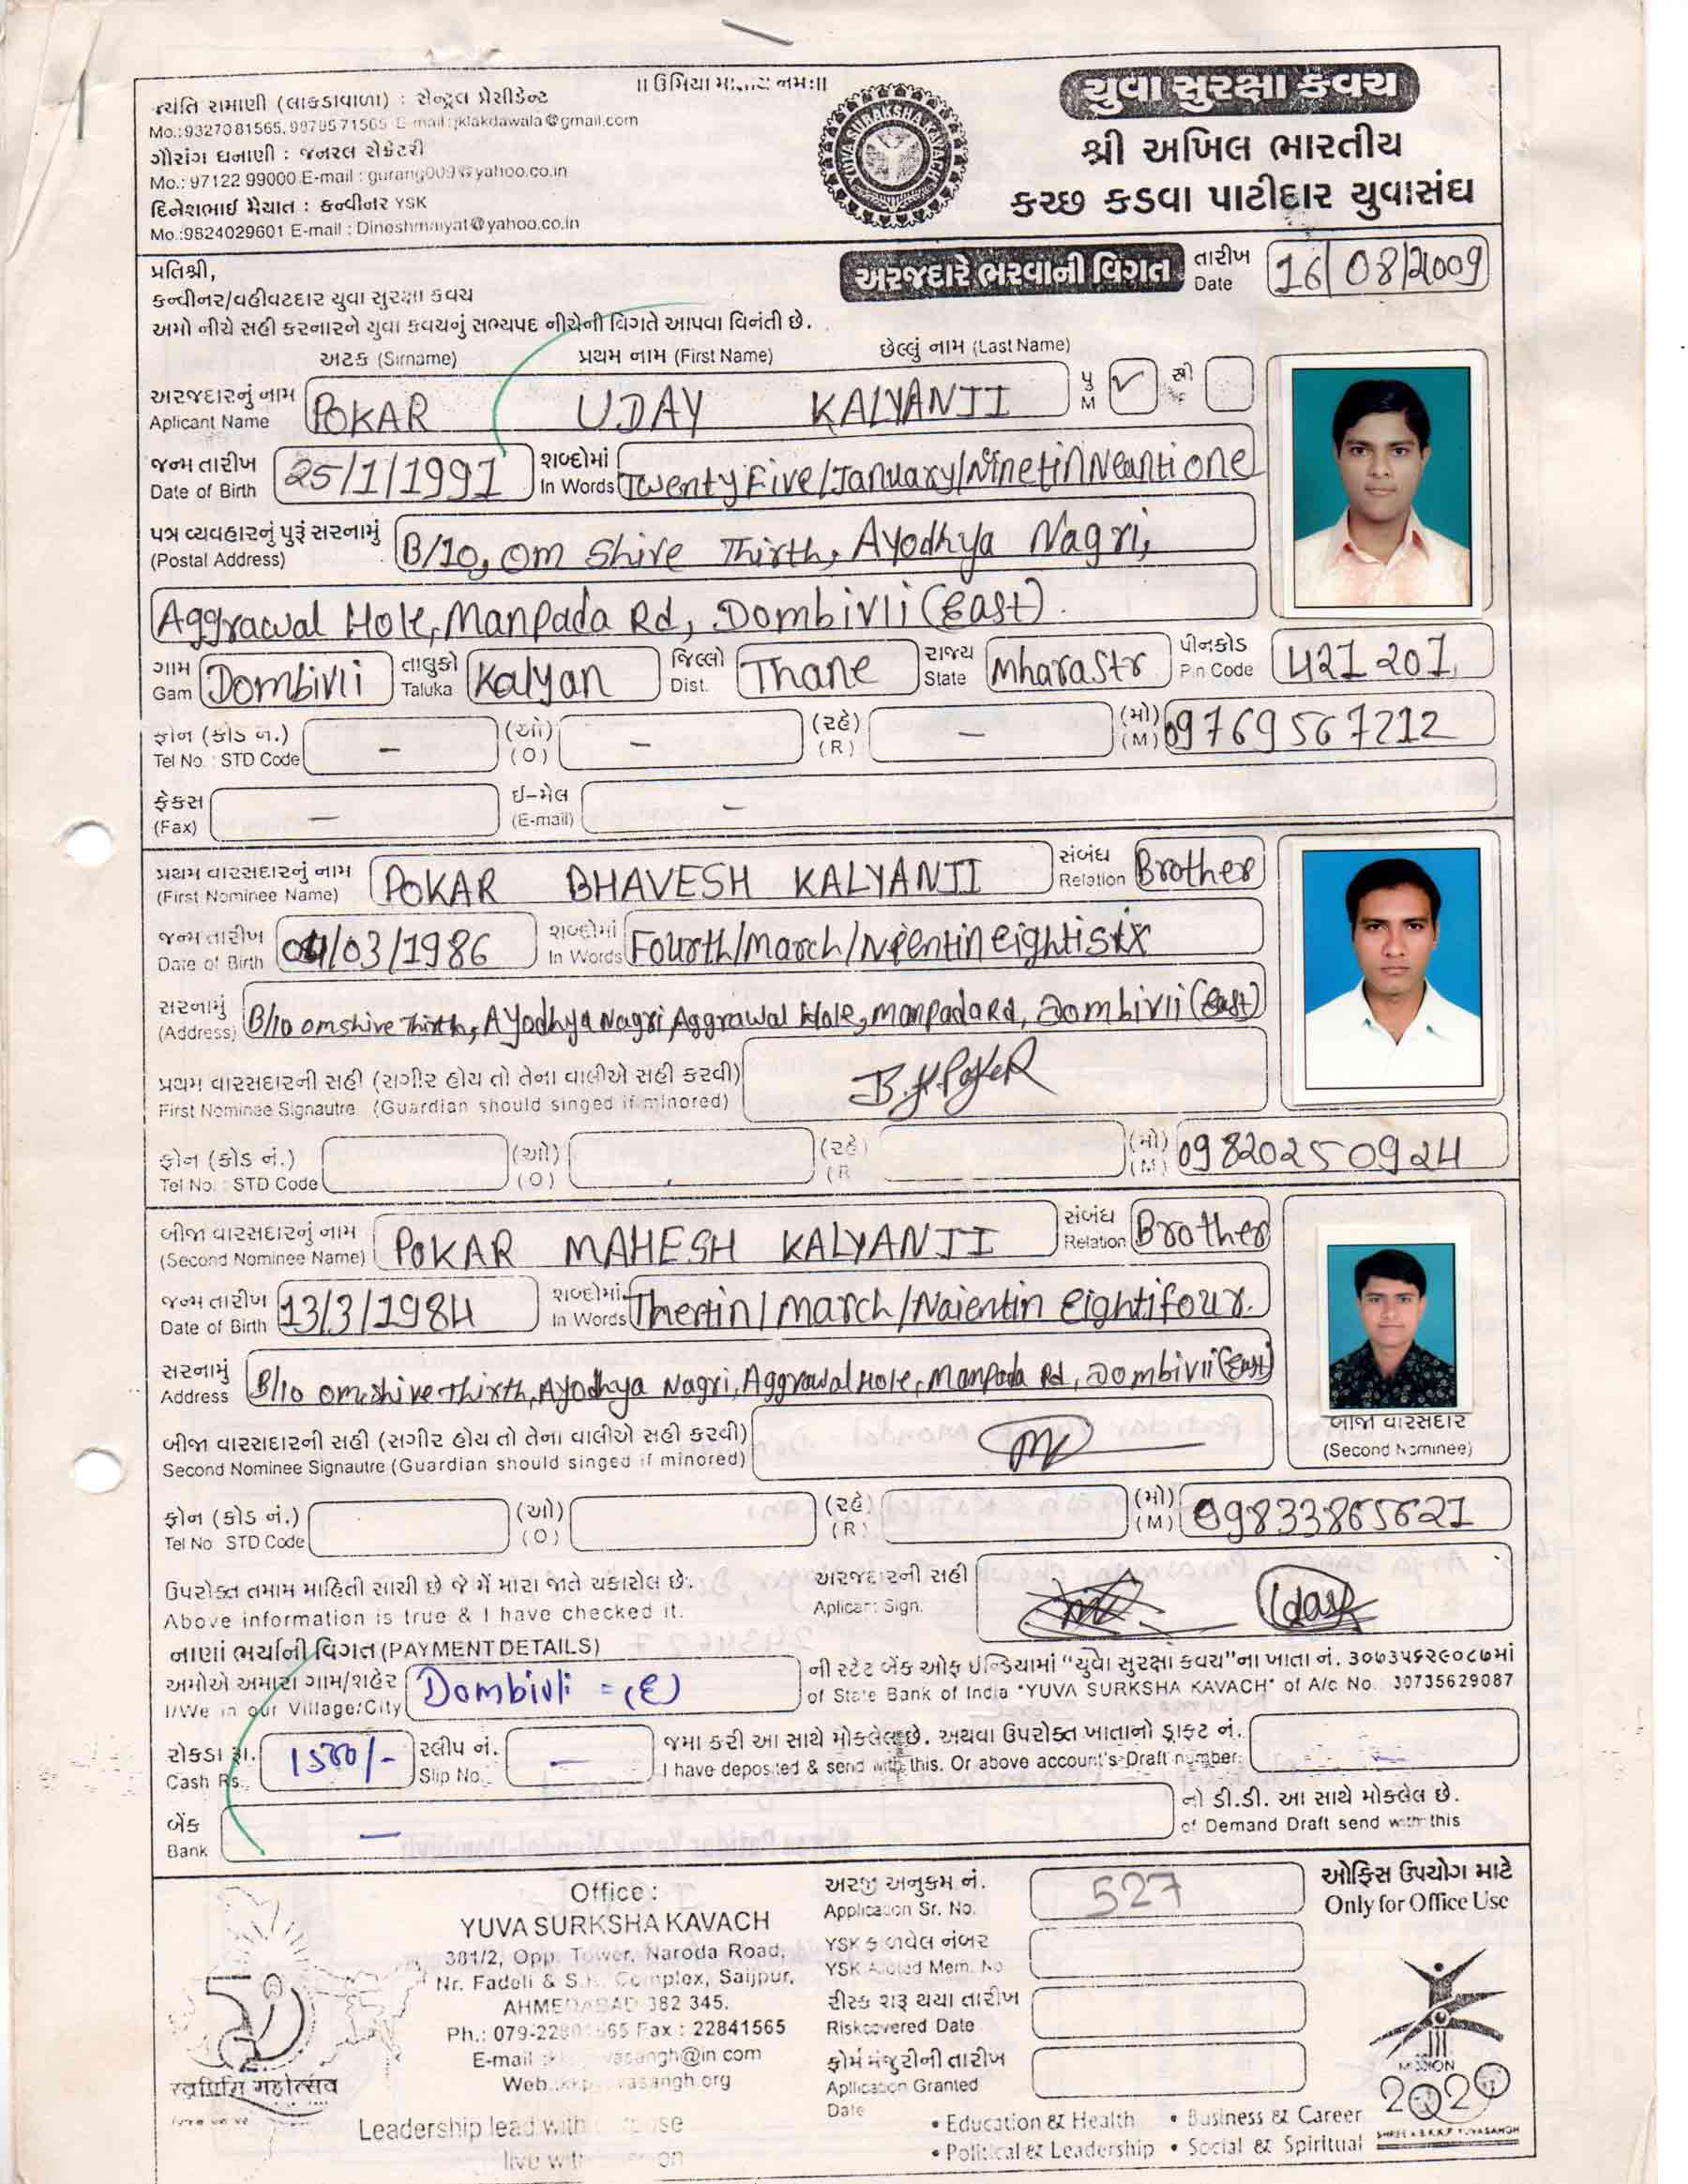 ॥ ઉમિયા માતાય નમઃ॥
રમાણી (લાકડાવાળા) : સેન્ટ્રલ પ્રેસીડેન્ટ
Mo.:9327081565, E-mail:jklakdawala@gmail.com
ગૌરાંગ ધનાણી : જનરલ સેક્રેટરી
Mo.: 97122 99000 E-mail : gurang009@yahoo.co.in
દિનેશભાઈ મૈયાત : કન્વીનર YSK
Mo.:9824029601 E-mail : Dineshmaiyat@yahoo.co.in
YUVA SURAKSHA KAVACH
યુવા સુરક્ષા કવચ
શ્રી અખિલ ભારતીય
કચ્છ કડવા પાટીદાર યુવાસંઘ
અરજદારે ભરવાની વિગત
તારીખ
Date
16/08/2009
પ્રતિશ્રી,
કન્વીનર/વહીવટદાર યુવા સુરક્ષા કવચ
અમો નીચે સહી કરનારને યુવા કવચનું સભ્યપદ નીચેની વિગતે આપવા વિનંતી છે.
અટક (Sirname) પ્રથમ નામ (First Name) છેલ્લું નામ (Last Name)
અરજદારનું નામ
Aplicant Name
POKAR UDAY KALYANJI
પુ M ✓ સ્ત્રી F
જન્મ તારીખ
Date of Birth
25/1/1991
શબ્દોમાં
In Words
Twenty Five/January/NinetinNeanti one
પત્ર વ્યવહારનું પુરૂં સરનામું
(Postal Address)
B/10, Om Shive Thirth, Ayodhya Nagri,
Aggrawal Hole, Manpada Rd, Dombivli (East).
ગામ
Gam
Dombivli
તાલુકો
Taluka
Kalyan
જિલ્લો
Dist.
Thane
રાજ્ય
State
Mharastr
પીનકોડ
Pin Code
421 201
ફોન (કોડ નં.)
Tel No. : STD Code
–
(ઓ)
(O)
–
(રહે)
(R)
–
(મો)
(M)
09769567212
ફેક્સ
(Fax)
–
ઈ-મેલ
(E-mail)
–
પ્રથમ વારસદારનું નામ
(First Nominee Name)
POKAR BHAVESH KALYANJI
સંબંધ
Relation
Brother
જન્મ તારીખ
Date of Birth
04/03/1986
શબ્દોમાં
In Words
Fourth/March/Naientin eightisix
સરનામું
(Address)
B/10 omshive Thirth, Ayodhya Nagri Aggrawal Hole, manpada Rd, Dombivli (East)
પ્રથમ વારસદારની સહી (સગીર હોય તો તેના વાલીએ સહી કરવી)
First Nominee Signautre (Guardian should singed if minored)
B.K.Poker
ફોન (કોડ નં.)
Tel No. : STD Code
(ઓ)
(O)
(રહે)
(R
(મો)
(M)
09820250924
બીજા વારસદારનું નામ
(Second Nominee Name)
POKAR MAHESH KALYANJI
સંબંધ
Relation
Brother
જન્મ તારીખ
Date of Birth
13/3/1984
શબ્દોમાં
In Words
Thertin/March/Naientin Eightifour.
સરનામું
Address
B/10 omshive Thirth, Ayodhya Nagri, Aggrawal Hole, Manpada Rd, Dombivli (East)
બીજા વારસદારની સહી (સગીર હોય તો તેના વાલીએ સહી કરવી)
Second Nominee Signautre (Guardian should singed if minored)
બીજા વારસદાર
(Second Nominee)
ફોન (કોડ નં.)
Tel No STD Code
(ઓ)
(O)
(રહે)
(R)
(મો)
(M)
09833865621
ઉપરોક્ત તમામ માહિતી સાચી છે જે મેં મારા જાતે ચકાસેલ છે.
Above information is true & I have checked it.
અરજદારની સહી
Aplicant Sign.
Uday
નાણાં ભર્યાની વિગત (PAYMENT DETAILS)
અમોએ અમારા ગામ/શહેર
I/We in our Village/City
Dombivli = (E)
ની સ્ટેટ બેંક ઓફ ઈન્ડિયામાં "યુવા સુરક્ષા કવચ"ના ખાતા નં. ૩૦૭૩૫૬૨૯૦૮૭માં
of State Bank of India "YUVA SURKSHA KAVACH" of A/c No. 30735629087
રોકડા રૂા.
Cash Rs.
1500/-
સ્લીપ નં.
Slip No.
–
જમા કરી આ સાથે મોકલેલ છે. અથવા ઉપરોક્ત ખાતાનો ડ્રાફ્ટ નં.
I have deposited & send with this. Or above account's Draft number.
–
બેંક
Bank
–
નો ડી.ડી. આ સાથે મોકલેલ છે.
of Demand Draft send with this
Office :
YUVA SURKSHA KAVACH
381/2, Opp. Tower, Naroda Road,
Nr. Fadeli & Complex, Saijpur,
AHMEDABAD 382 345.
Ph.: Fax : 22841565
E-mail
Web.
અરજી અનુક્રમ નં.
Application Sr. No.
527
YSK ફાળવેલ નંબર
YSK Aloted Mem. No
રીસ્ક શરૂ થયા તારીખ
Riskcovered Date
ફોર્મ મંજુરીની તારીખ
Apllicaton Granted
Date
ઓફિસ ઉપયોગ માટે
Only for Office Use
50
Leadership lead with
live with
• Education & Health • Business & Career
• Political & Leadership • Social & Spiritual
MISSION
2020
SHREE A.B.K.K.P. YUVASANGH